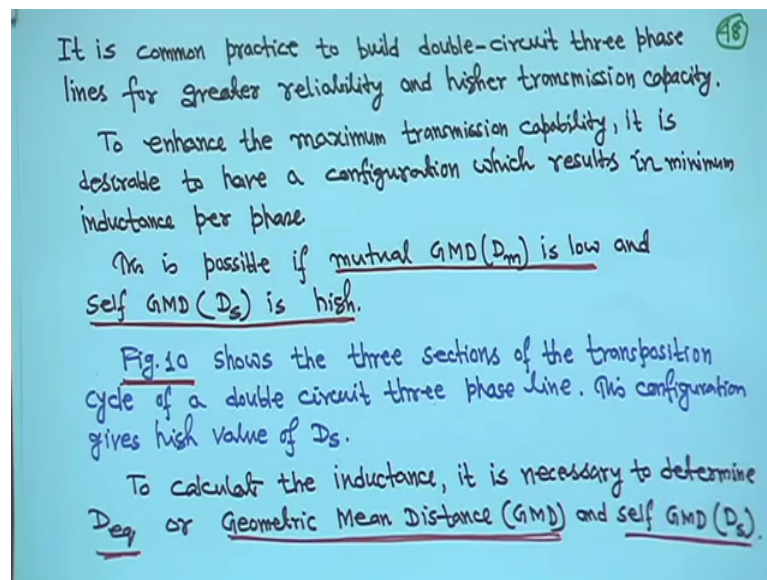 48
It is common practice to build double-circuit three phase
lines for greater reliability and higher transmission capacity.
To enhance the maximum transmission capability, it is
desirable to have a configuration which results in minimum
inductance per phase.
This is possible if mutual GMD (Dm) is low and
self GMD (Ds) is high.
Fig. 10 shows the three sections of the transposition
cycle of a double circuit three phase line. This configuration
gives high value of Ds.
To calculat the inductance, it is necessary to determine
Deq or Geometric Mean Distance (GMD) and self GMD (Ds).